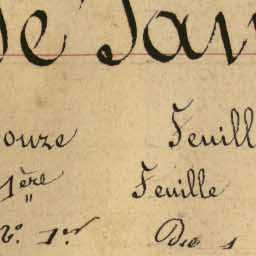 de Jan
ouze Feuill
1ère Feuille
No. 1er Du 1